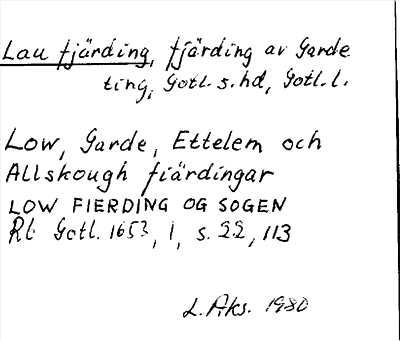 Lau fjärding, fjärding av Garde
ting, Gotl. s. hd, Gotl. l.
Low, Garde, Ettelem och
Allskough fiärdingar
LOW FIERDING OG SOGEN
Rt Gotl. 1653, 1, s. 22, 113
L. Aks. 1980